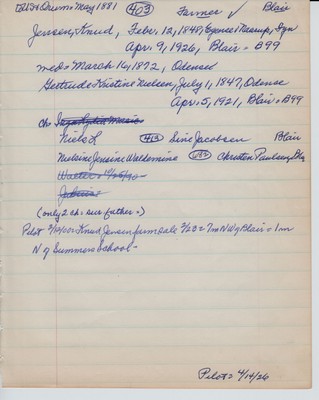 May 1881 (403) Farmer ✓ Blair
Jensen, Knud, Febr. 12, 1848,
Apr. 9, 1926, Blair = B99
md = March 14, 1872, Odense
Gertrude Kristine Nielsen, July 1, 1847, Odense
Apr. 5, 1921, Blair = B99
ch:
Niels L Sine Jacobsen Blair
Jensine Waldemine Christen Paulsen, Bla
Walter =
(only 2 ch. sur father =)
Pilot Knud Jensen farm sale = 7m NW of Blair = 1m
N of Summers School -
Pilot = 4/14/26